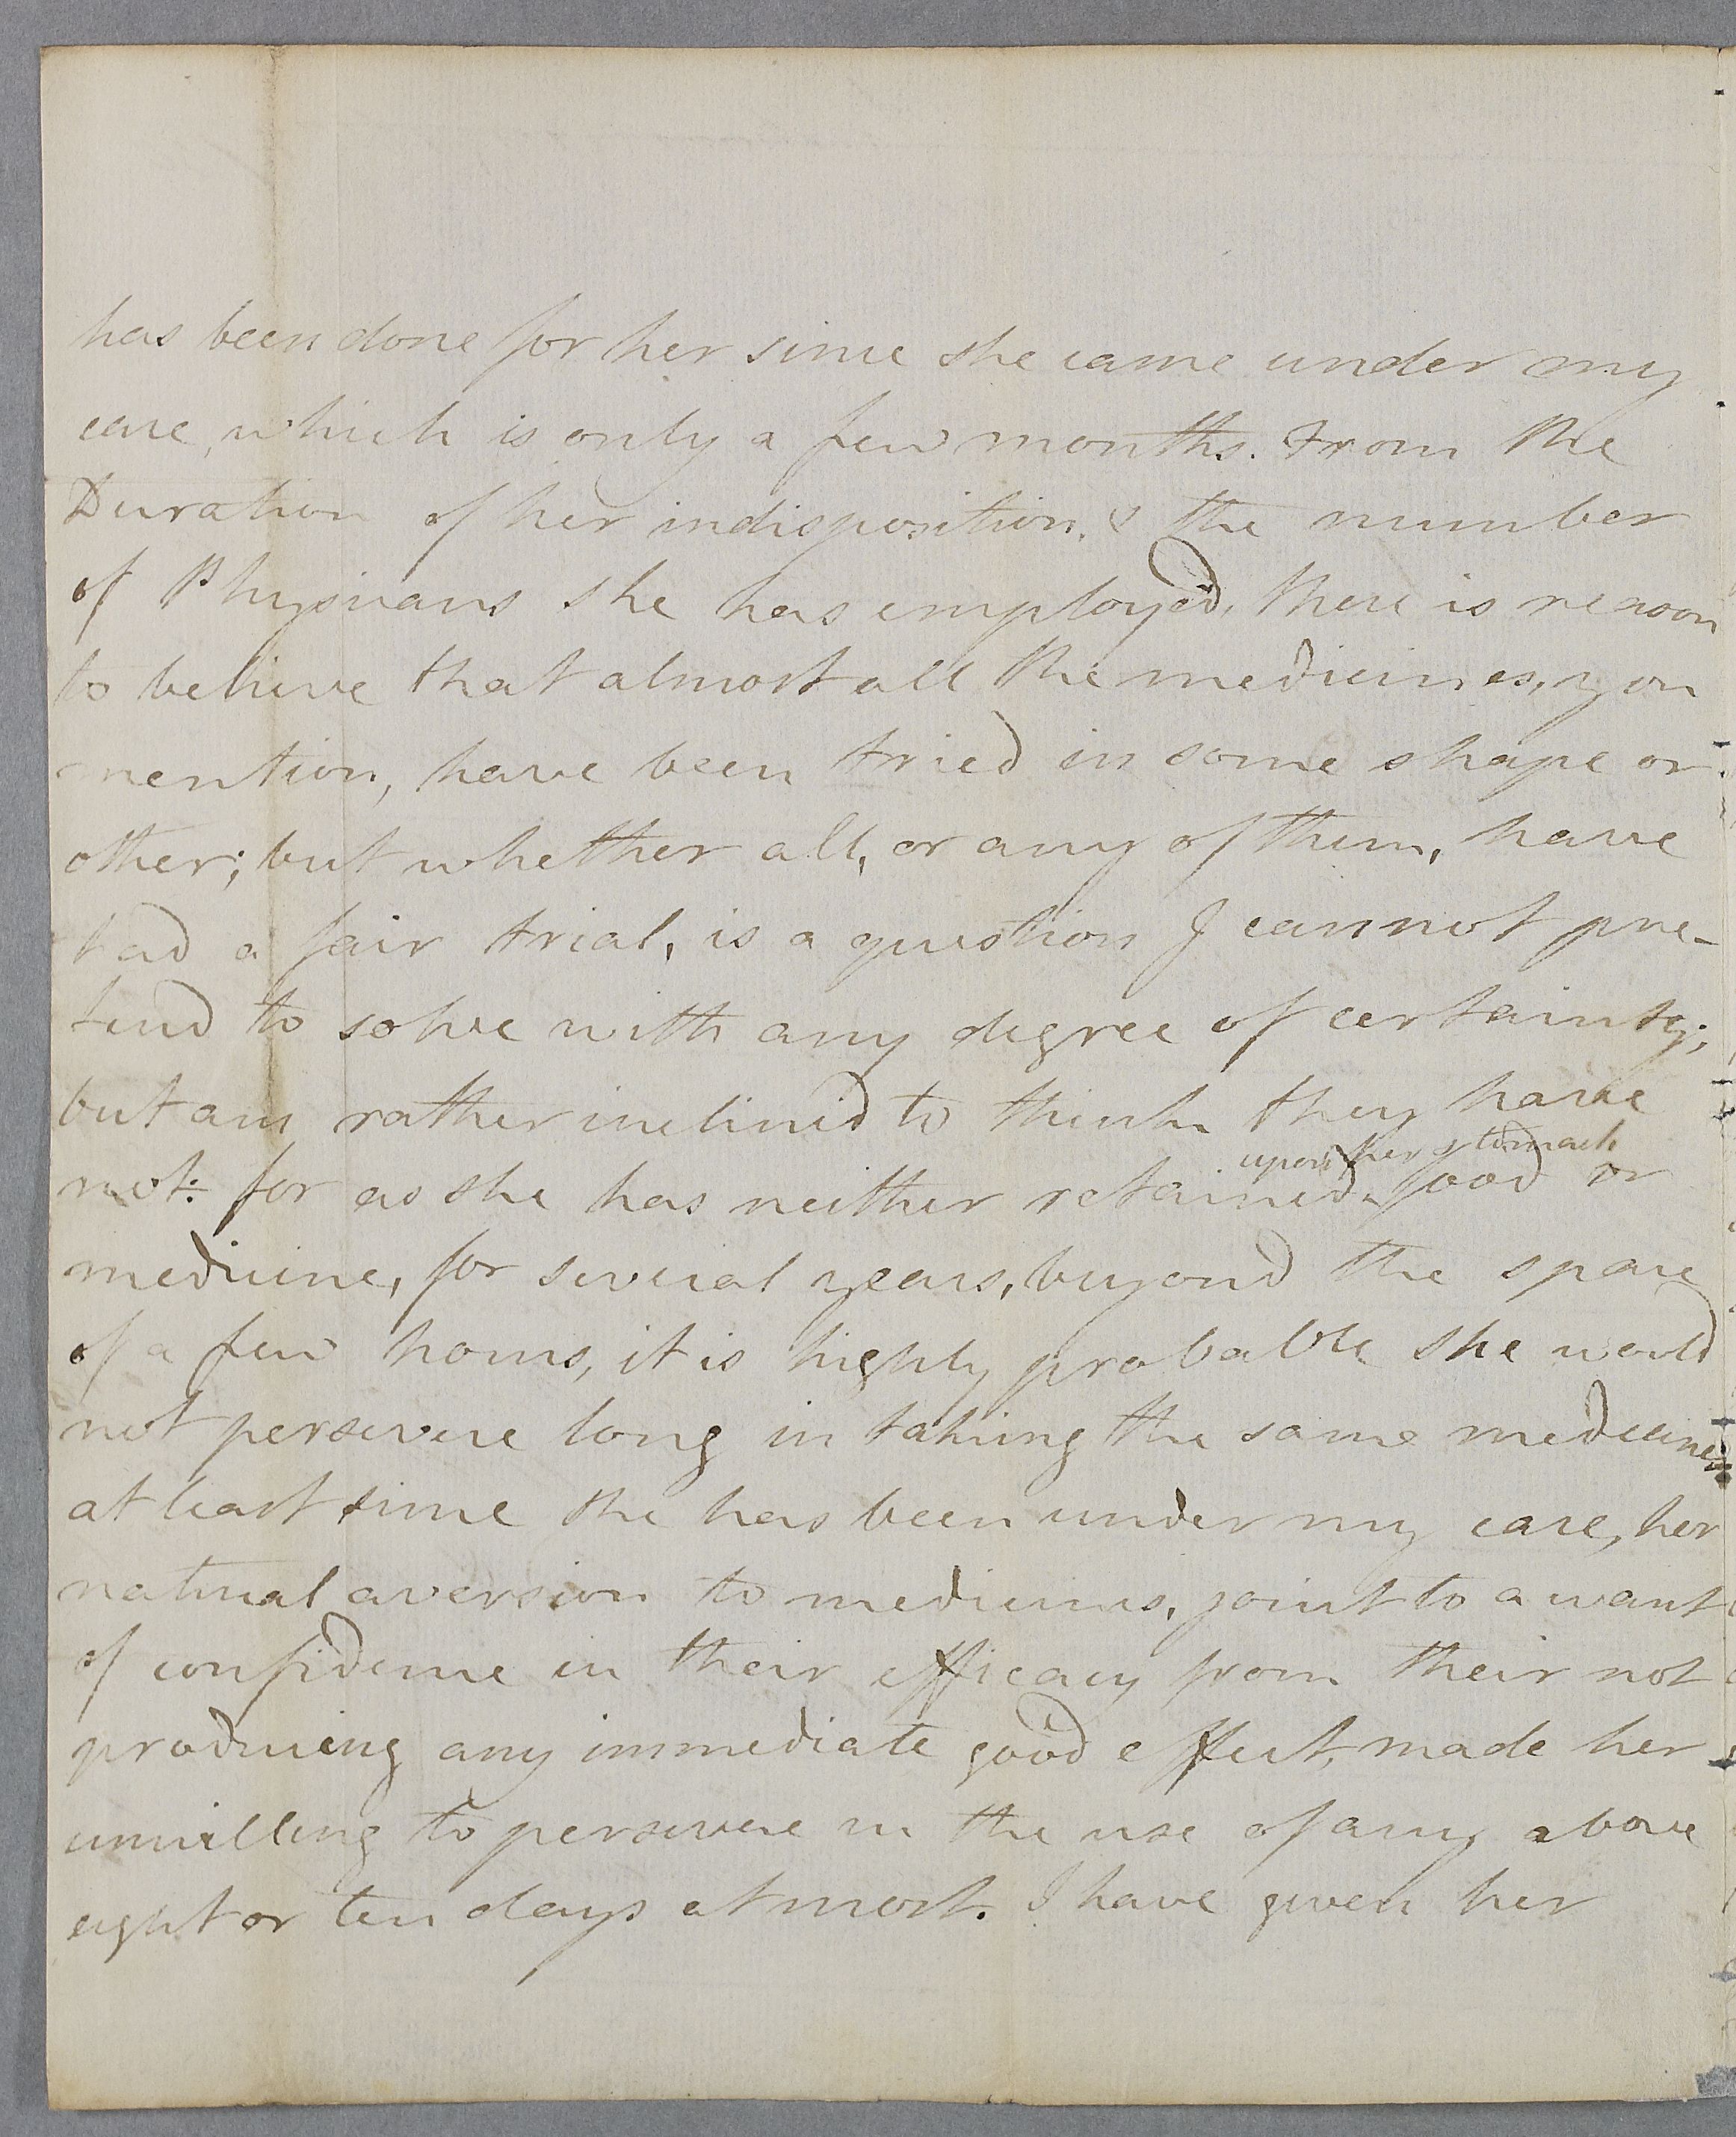 has been done for her since she came under my
care, which is only a few months. From the
Duration of her indisposition, & the number
of Physicians she has employed, there is reason
to believe that almost all the medicines, you
mention, have been tried in some shape or
other; but whether all, or any of them, have
had a fair trial, is a question I cannot pre-
tend to solve with any degree of certainty;
but am rather inclined to think they have
upon her stomach
not: for as she has neither retained food or
medicine, for several years, beyond the space
of a few hours, it is highly probable she would
not persevere long in taking the same medicine;
at least since she has been under my care, her
natural aversion to medicines, joint to a want
of confidence in their efficacy from their not
producing any immediate good effect, made her
unwilling to persevere in the use of any above
eight or ten days at most. I have given her